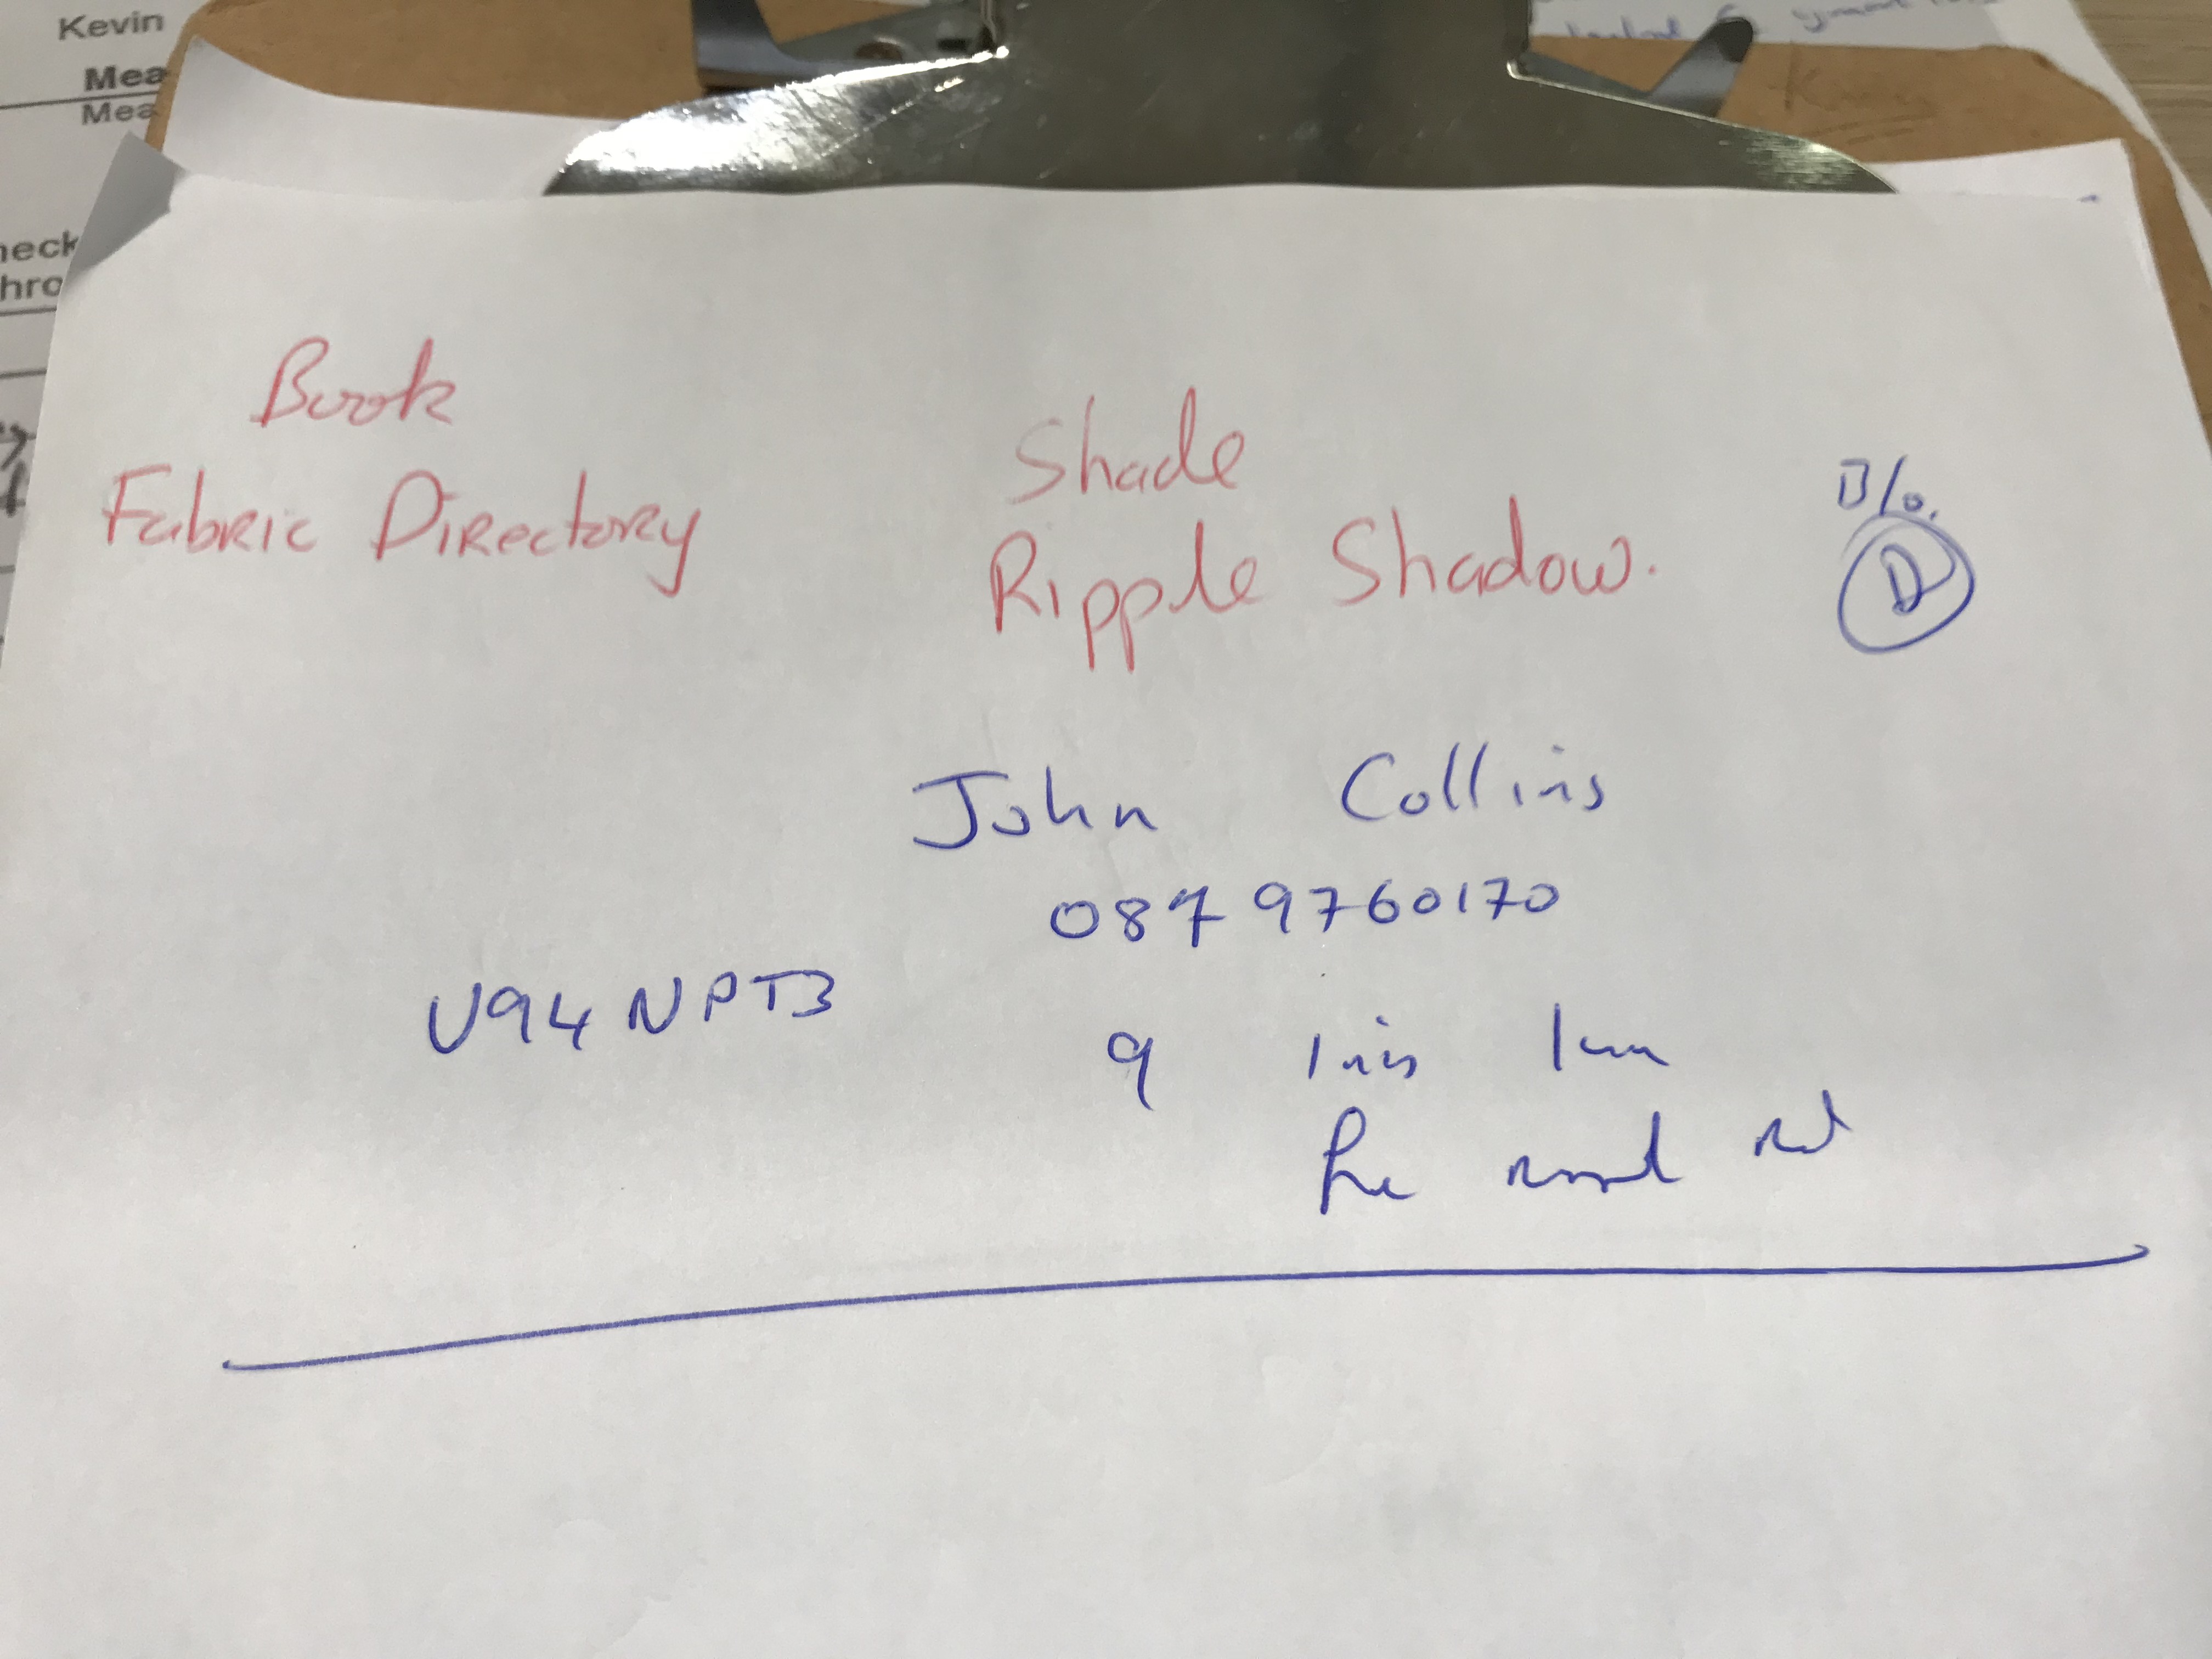 Kevin
Mea
Mea
heck
hro
Book
Fabric Directory
Shade
Ripple Shadow.
B/o.
D
John Collins
087 9760170
V94 NPT3
9 Inis